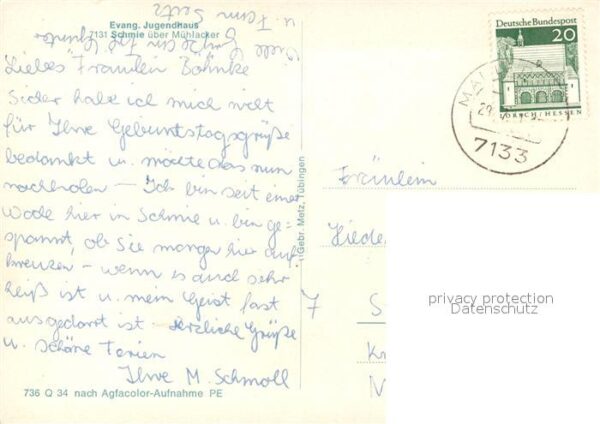 Evang. Jugendhaus
7131 Schmie über Mühlacker
u. Fam. Seitz
Viele Grüße
Liebes Fräulein Böhnke
Sicher habe ich mich nicht
für Ihre Geburtstagsgrüße
bedankt u. möchte das nun
nachholen – Ich bin seit einer
Woche hier in Schmie u. bin ge-
spannt, ob Sie morgen hier auf
kreuzen – wenn es auch sehr
heiß ist u. mein Geist fast
ausgedorrt ist. Herzliche Grüße
u. schöne Ferien
Ihre M. Schmoll
736 Q 34 nach Agfacolor-Aufnahme PE
Gebr. Metz, Tübingen
Deutsche Bundespost
20
LORSCH/HESSEN
7133
Fräulein
7
privacy protection
Datenschutz